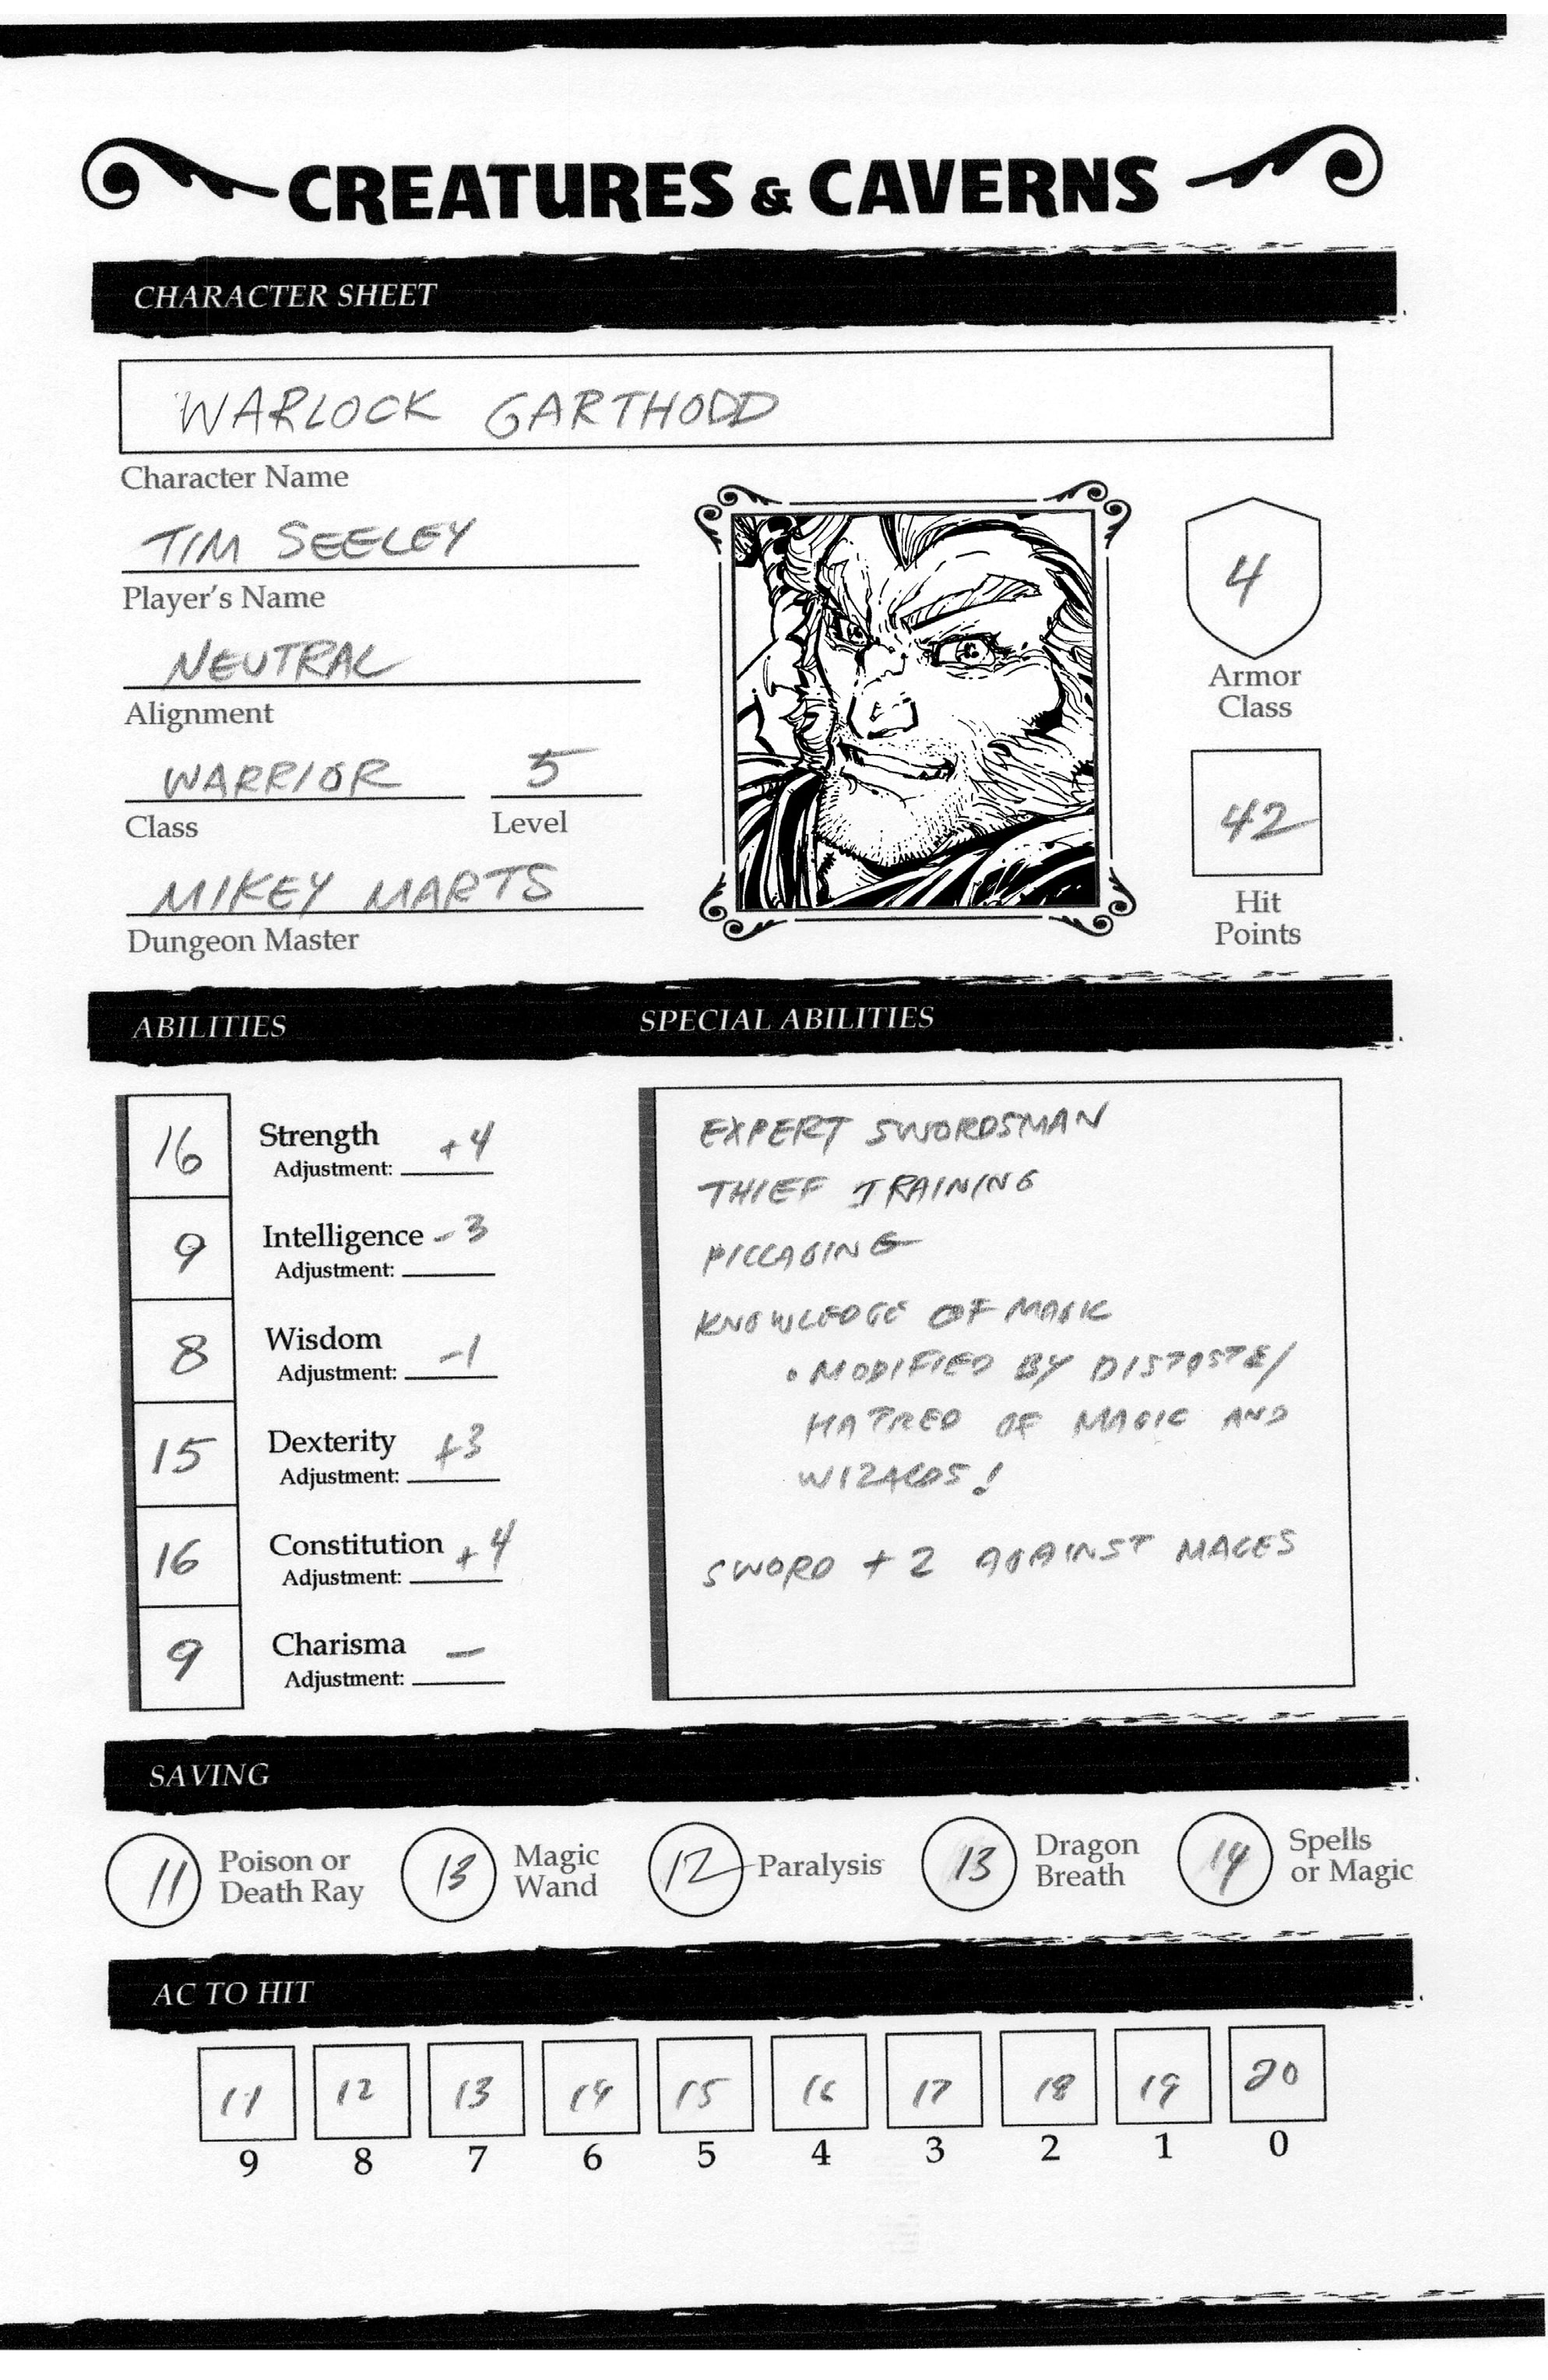 CREATURES & CAVERNS
CHARACTER SHEET
WARLOCK GARTHODD
Character Name
TIM SEELEY
Player's Name
NEUTRAL
Alignment
WARRIOR 5
Class Level
MIKEY MARTS
Dungeon Master
4
Armor
Class
42
Hit
Points
ABILITIES SPECIAL ABILITIES
16 Strength +4
Adjustment:
9 Intelligence -3
Adjustment:
8 Wisdom -1
Adjustment:
15 Dexterity +3
Adjustment:
16 Constitution +4
Adjustment:
9 Charisma —
Adjustment:
EXPERT SWORDSMAN
THIEF TRAINING
PILLAGING
KNOWLEDGE OF MAGIC
• MODIFIED BY DISTASTE/
HATRED OF MAGIC AND
WIZARDS!
SWORD +2 AGAINST MAGES
SAVING
11 Poison or
Death Ray
13 Magic
Wand
12 Paralysis
13 Dragon
Breath
14 Spells
or Magic
AC TO HIT
11 12 13 14 15 16 17 18 19 20
9 8 7 6 5 4 3 2 1 0